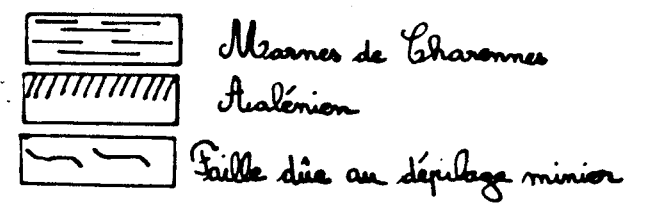 Marnes de Charennes
Aalénien
Faille dûe au dépilage minier